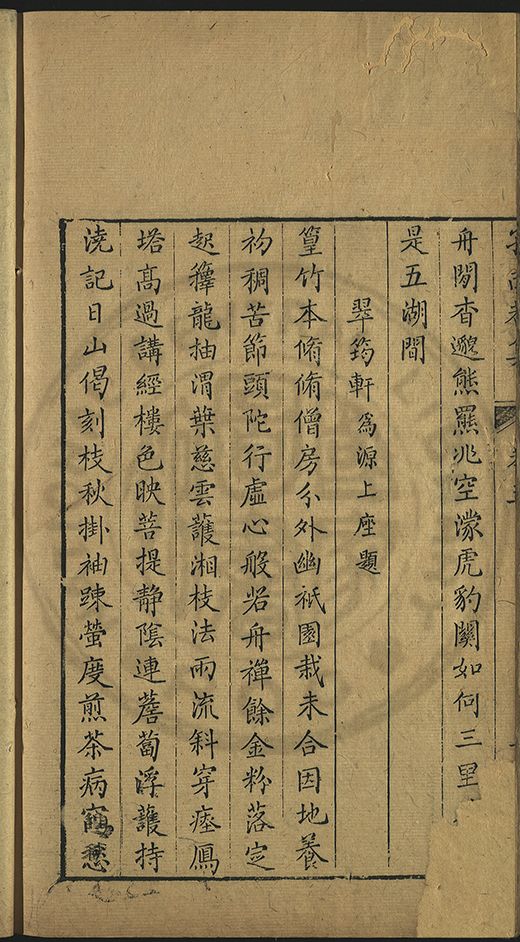 舟閱杳邈熊羆兆空濛虎豹關如何三里
是五湖間
翠筠軒為源上座題
篁竹本脩脩僧房分外幽祇園栽未合因地養
初稠苦節頭陀行虛心般若舟禪餘金粉落定
起籜龍抽渭葉慈雲護湘枝法雨流斜穿瘞鴈
塔高過講經樓色映菩提靜陰連薝蔔浮護持
澆記日山偈刻枝秋掛袖踈螢度煎茶病竊愁